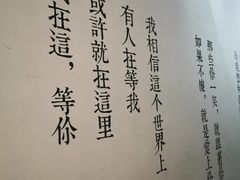 那些你一笑，就跟著你
如果不傻，就是愛上
我相信這個世界上
有人在等我
或許就在這里
在這，等你